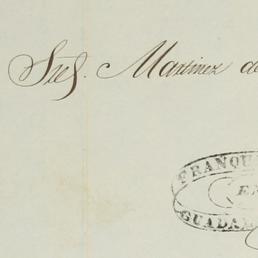 Sres. Martinez de
FRANQU
EN
GUADA